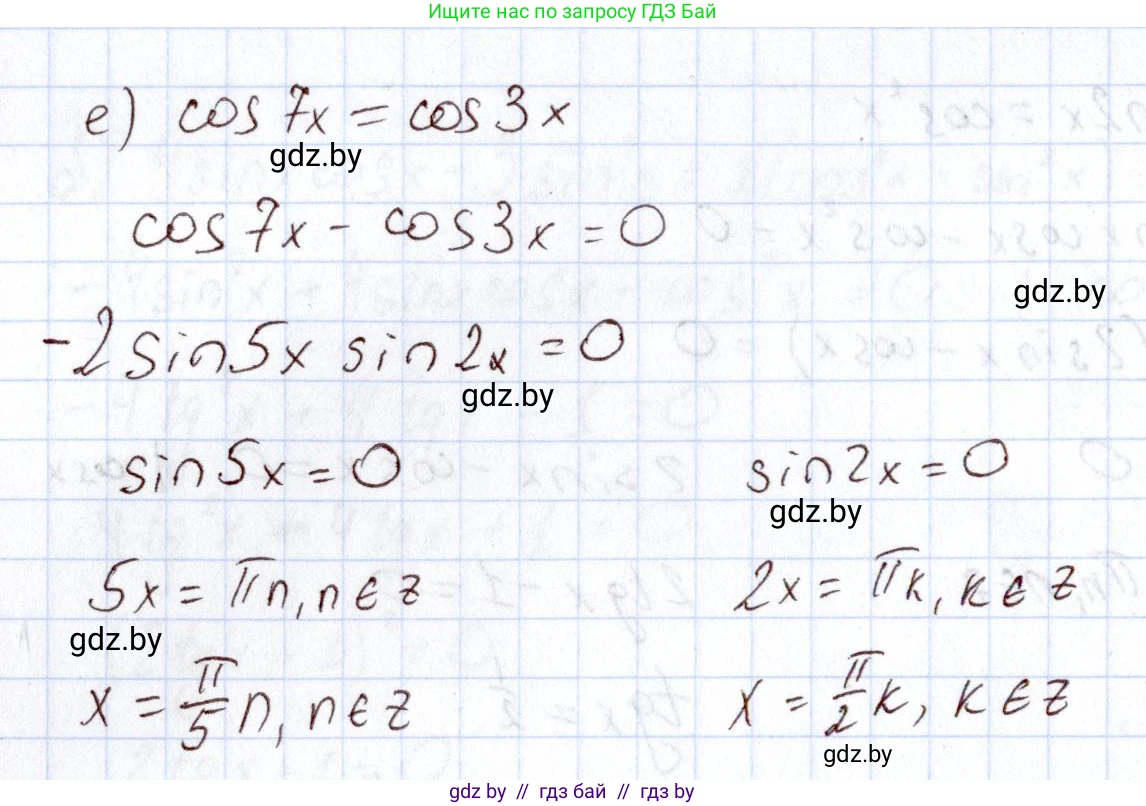 Ищите нас по запросу ГДЗ Бай
е) cos 7x = cos 3x
gdz.by
cos 7x - cos 3x = 0
gdz.by
-2 sin 5x sin 2x = 0
gdz.by
sin 5x = 0 sin 2x = 0
gdz.by
5x = πn, n ∈ z 2x = πk, k ∈ z
gdz.by
x = π/5 n, n ∈ z x = π/2 k, k ∈ z
gdz.by
gdz by // гдз бай // гдз by